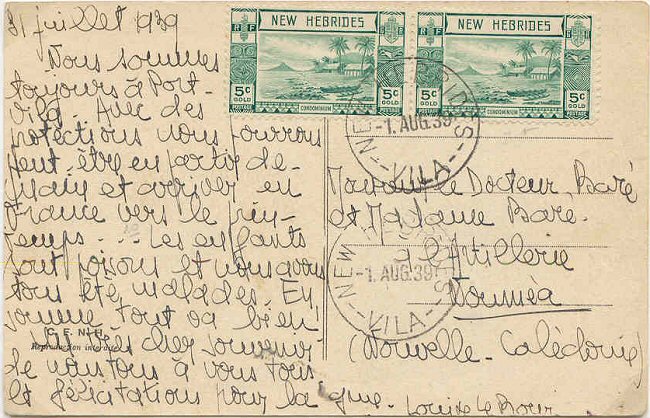 31 juillet 1939
Nous sommes
toujours à Port-
Vila. Avec des
protections nous pourrons
peut-être en partir de-
main et arriver en
France vers le prin-
temps... Les enfants
sont poison et nous avons
tous été malades. En
somme tout va bien!
cher souvenir
de nous tous à vous tous
félicitations pour la
Louise Le
C. F. N. H.
Reproduction interdite
NEW HEBRIDES
RF
5c
GOLD
CONDOMINIUM
5c
GOLD
POSTAGE
NEW HEBRIDES
RF
5c
GOLD
CONDOMINIUM
5c
GOLD
POSTAGE
NEW HEBRIDES
-1. AUG.39
VILA
Monsieur le Docteur Baré
et Madame Baré
à l'Artillerie
NEW HEBRIDES
-1. AUG.39
VILA
Nouméa
(Nouvelle-Calédonie)